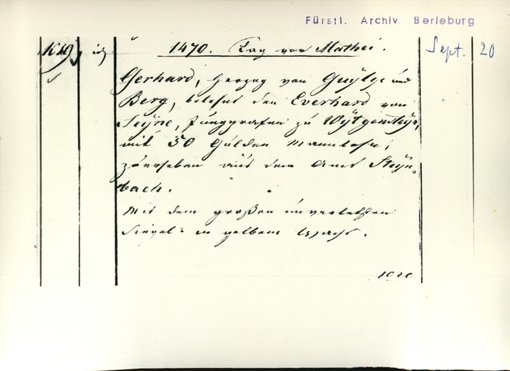 Fürstl. Archiv Berleburg
1470. Tag vor Mathei.
Sept. 20
Gerhard, Herzog von Guylge und
Berg, belehnt den Everhard von
Seyne, Junggrafen zu Wytgensteyn,
mit 50 Gulden Mannlehn,
zu erheben aus dem Amt Steyn-
bach.
Mit dem großen unverletzten
Siegel in gelbem Wachs.